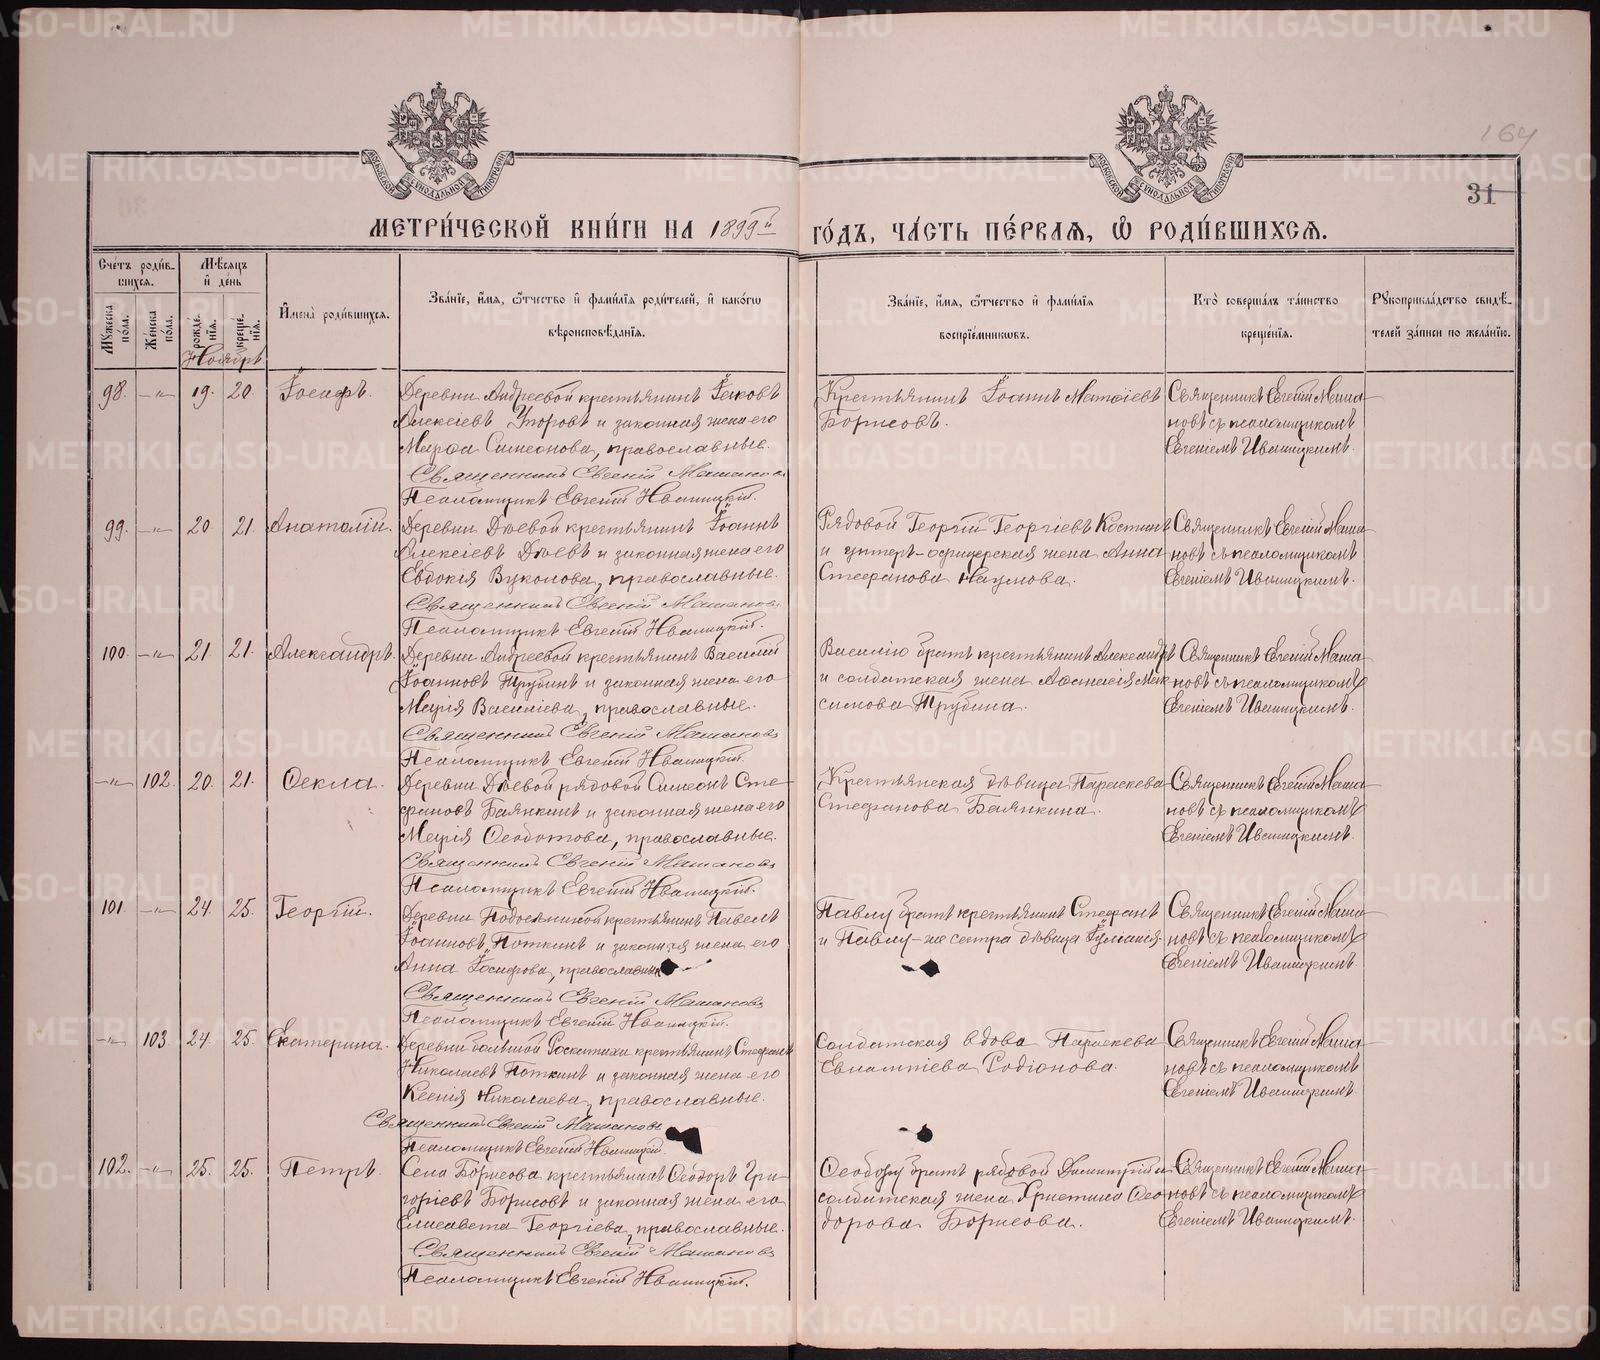 METRIKI.GASO-URAL.RU
МОСКОВСКОЙ СѴНОДАЛЬНОЙ ТИПОГРАФІИ
МОСКОВСКОЙ СѴНОДАЛЬНОЙ ТИПОГРАФІИ
164
31
МЕТРИ́ЧЕСКОЙ КНИ́ГИ НА 1899й ГО́ДЪ, ЧА́СТЬ ПЕ́РВАѦ, Ѡ҆ РОДИ́ВШИХСѦ.
Сче́тъ роди́в-
шихсѧ.
Мꙋ́жеска по́ла.
Же́нска по́ла.
Мѣ́сѧцъ и҆ де́нь
рожде́-
нїѧ.
креще́-
нїѧ.
И҆мена̀ роди́вшихсѧ.
Зва́нїе, и҆́мѧ, ѻ҆́тчество и҆ фами́лїѧ роди́телей, и҆ како́гѡ
вѣроисповѣ́данїѧ.
Зва́нїе, и҆́мѧ, ѻ҆́тчество и҆ фами́лїѧ
воспрїе́мникѡвъ.
Кто̀ соверша́лъ та́инство
креще́нїѧ.
Рꙋкоприкла́дство свидѣ́-
телей за́писи по жела́нїю.
Ноябрь
98. —"— 19. 20. Іосифъ.
Деревни Андреевой крестьянинъ Іаковъ
Алексіевъ Упоровъ и законная жена его
Марѳа Симеонова, православные.
Священникъ Евгеній Машановъ
Псаломщикъ Евгеній Иваницкій.
Крестьянинъ Іоаннъ Матѳіевъ
Борисовъ.
Священникъ Евгеній Маша-
новъ съ псаломщикомъ
Евгеніемъ Иваницкимъ.
99. —"— 20 21. Анатолій.
Деревни Дѣевой крестьянинъ Іоаннъ
Алексіевъ Дѣевъ и законная жена его
Евдокія Вуколова, православные.
Священникъ Евгеній Машановъ
Псаломщикъ Евгеній Иваницкій.
Рядовой Георгій Георгіевъ Костинъ
и унтеръ-офицерская жена Анна
Стефанова Наумова.
Священникъ Евгеній Маша-
новъ съ псаломщикомъ
Евгеніемъ Иваницкимъ.
100. —"— 21. 21. Александръ.
Деревни Андреевой крестьянинъ Василій
Іоанновъ Трубинъ и законная жена его
Марія Василіева, православные.
Священникъ Евгеній Машановъ
Псаломщикъ Евгеній Иваницкій.
Василію братъ крестьянинъ Александръ
и солдатская жена Аѳанасія Мак-
симова Трубина.
Священникъ Евгеній Маша-
новъ съ псаломщикомъ
Евгеніемъ Иваницкимъ.
—"— 102. 20. 21. Ѳекла.
Деревни Дѣевой рядовой Симеонъ Сте-
фановъ Баянкинъ и законная жена его
Марія Ѳеодотова, православные.
Священникъ Евгеній Машановъ
Псаломщикъ Евгеній Иваницкій.
Крестьянская дѣвица Параскева
Стефанова Баянкина.
Священникъ Евгеній Маша-
новъ съ псаломщикомъ
Евгеніемъ Иваницкимъ.
101. —"— 24. 25. Георгій.
Деревни крестьянинъ Павелъ
Іоанновъ Поткинъ и законная жена его
Анна Іосифова, православные
Священникъ Евгеній Машановъ
Псаломщикъ Евгеній Иваницкій.
Павлу братъ крестьянинъ Стефанъ
и Павлу-же сестра дѣвица Іуліанія.
Священникъ Евгеній Маша-
новъ съ псаломщикомъ
Евгеніемъ Иваницкимъ.
—"— 103. 24. 25. Екатерина.
Деревни большой Роскатихи крестьянинъ Стефанъ
Николаевъ Поткинъ и законная жена его
Ксенія Николаева, православные.
Священникъ Евгеній Машановъ
Псаломщикъ Евгеній Иваницкій.
Солдатская вдова Параскева
Евлампіева Родіонова.
Священникъ Евгеній Маша-
новъ съ псаломщикомъ
Евгеніемъ Иваницкимъ.
102. —"— 25. 25. Петръ.
Села Борисова крестьянинъ Ѳеодоръ Гри-
горіевъ Борисовъ и законная жена его
Елисавета Георгіева, православные.
Священникъ Евгеній Машановъ
Псаломщикъ Евгеній Иваницкій.
Ѳеодору братъ рядовой Димитрій и
солдатская жена Христина Ѳео-
дорова Борисова.
Священникъ Евгеній Маша-
новъ съ псаломщикомъ
Евгеніемъ Иваницкимъ.